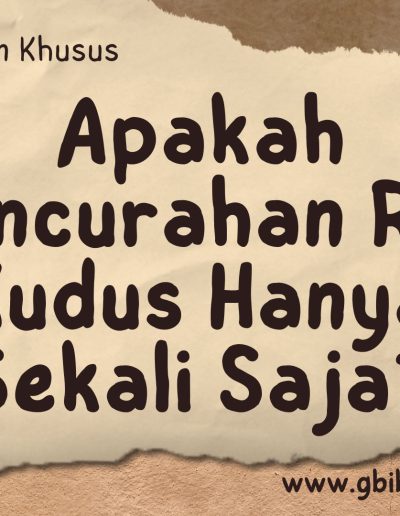 Khusus
Apakah
ncurahan R
udus Hanya
Sekali Saja?
www.gbi